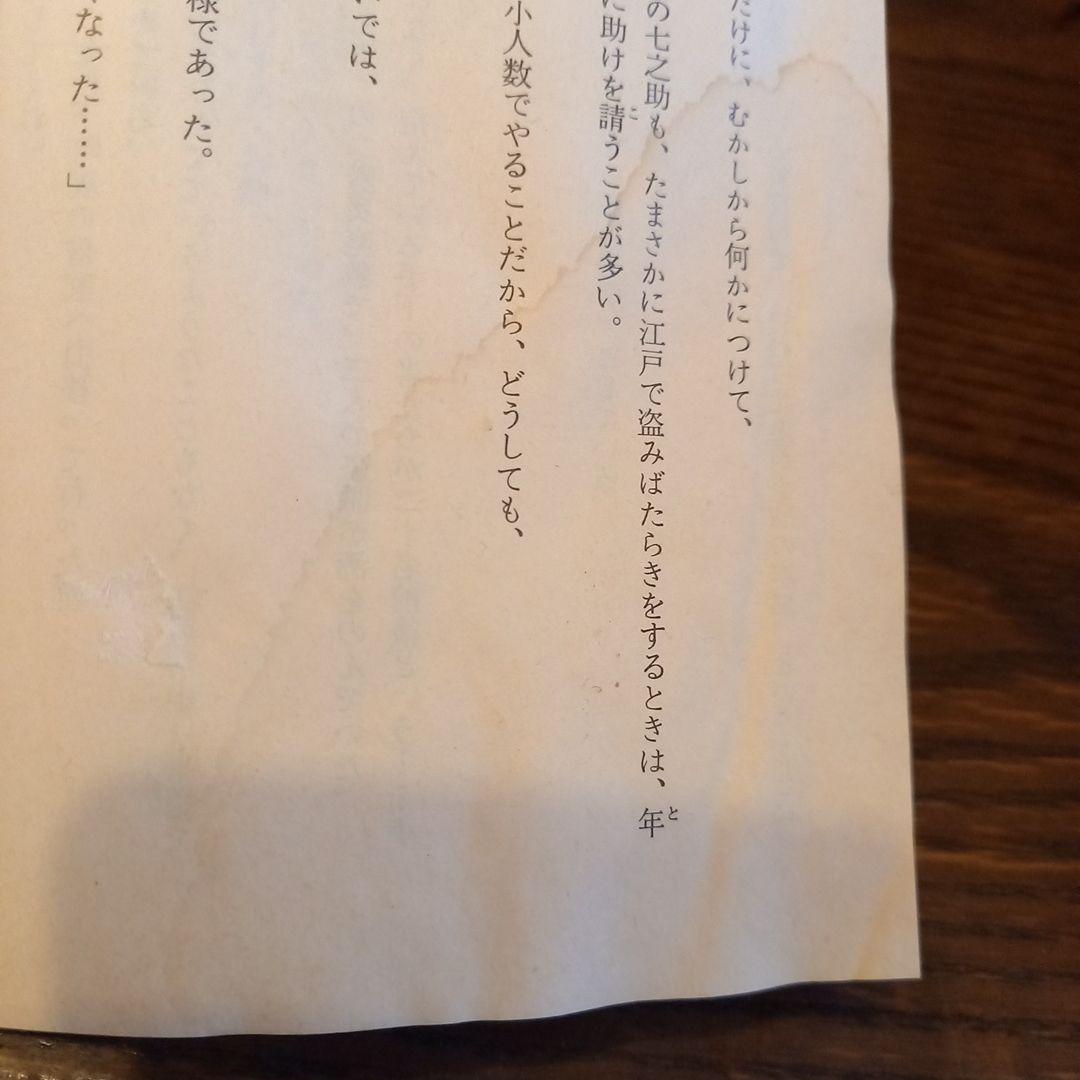 だけに、むかしから何かにつけて、
の七之助も、たまさかに江戸で盗みばたらきをするときは、年
と
に助けを請うことが多い。
こ
小人数でやることだから、どうしても、
では、
様であった。
なった……」